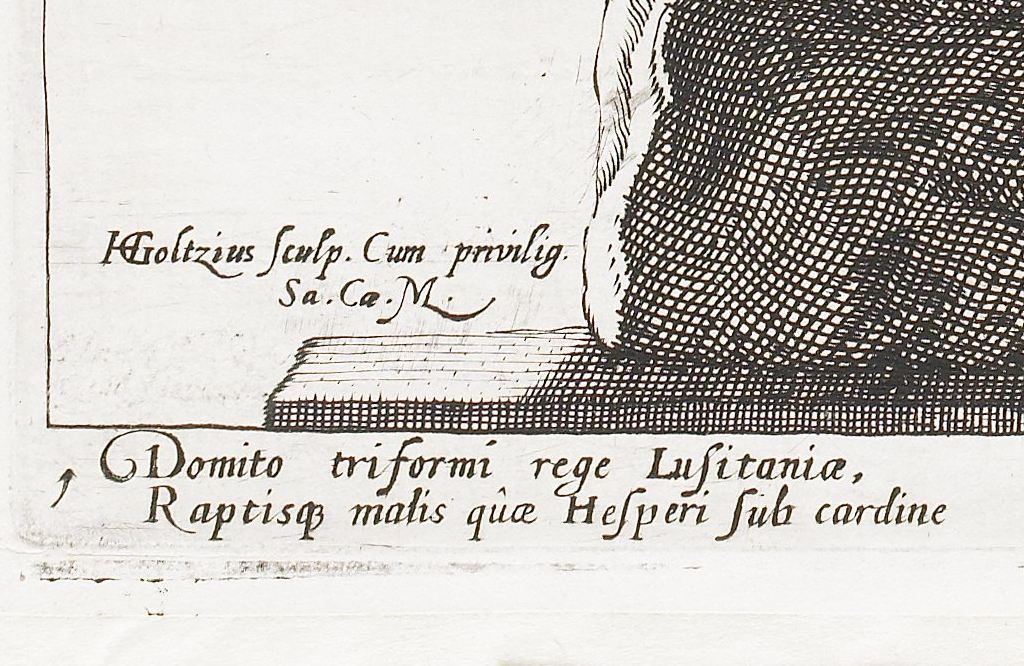 HGoltzius ſculp. Cum privilig.
Sa. Cæ. M.
Domito triformi rege Luſitaniæ,
Raptisqȝ malis quæ Heſperi ſub cardine